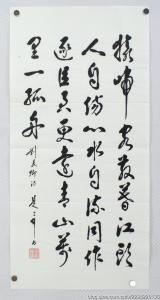 猿啼客散暮江頭
人自傷心水自流同作
逐臣君更遠青山萬
里一孤舟 劉長卿詩